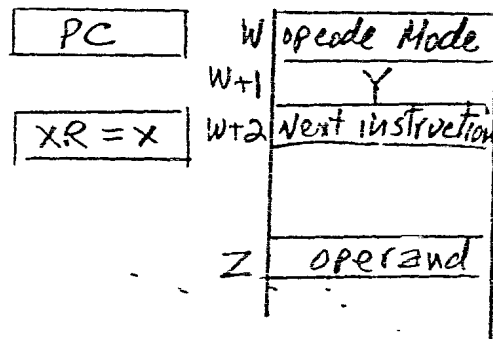 PC
W opcode Mode
W+1 Y
XR = X
W+2 Next instruction
Z operand